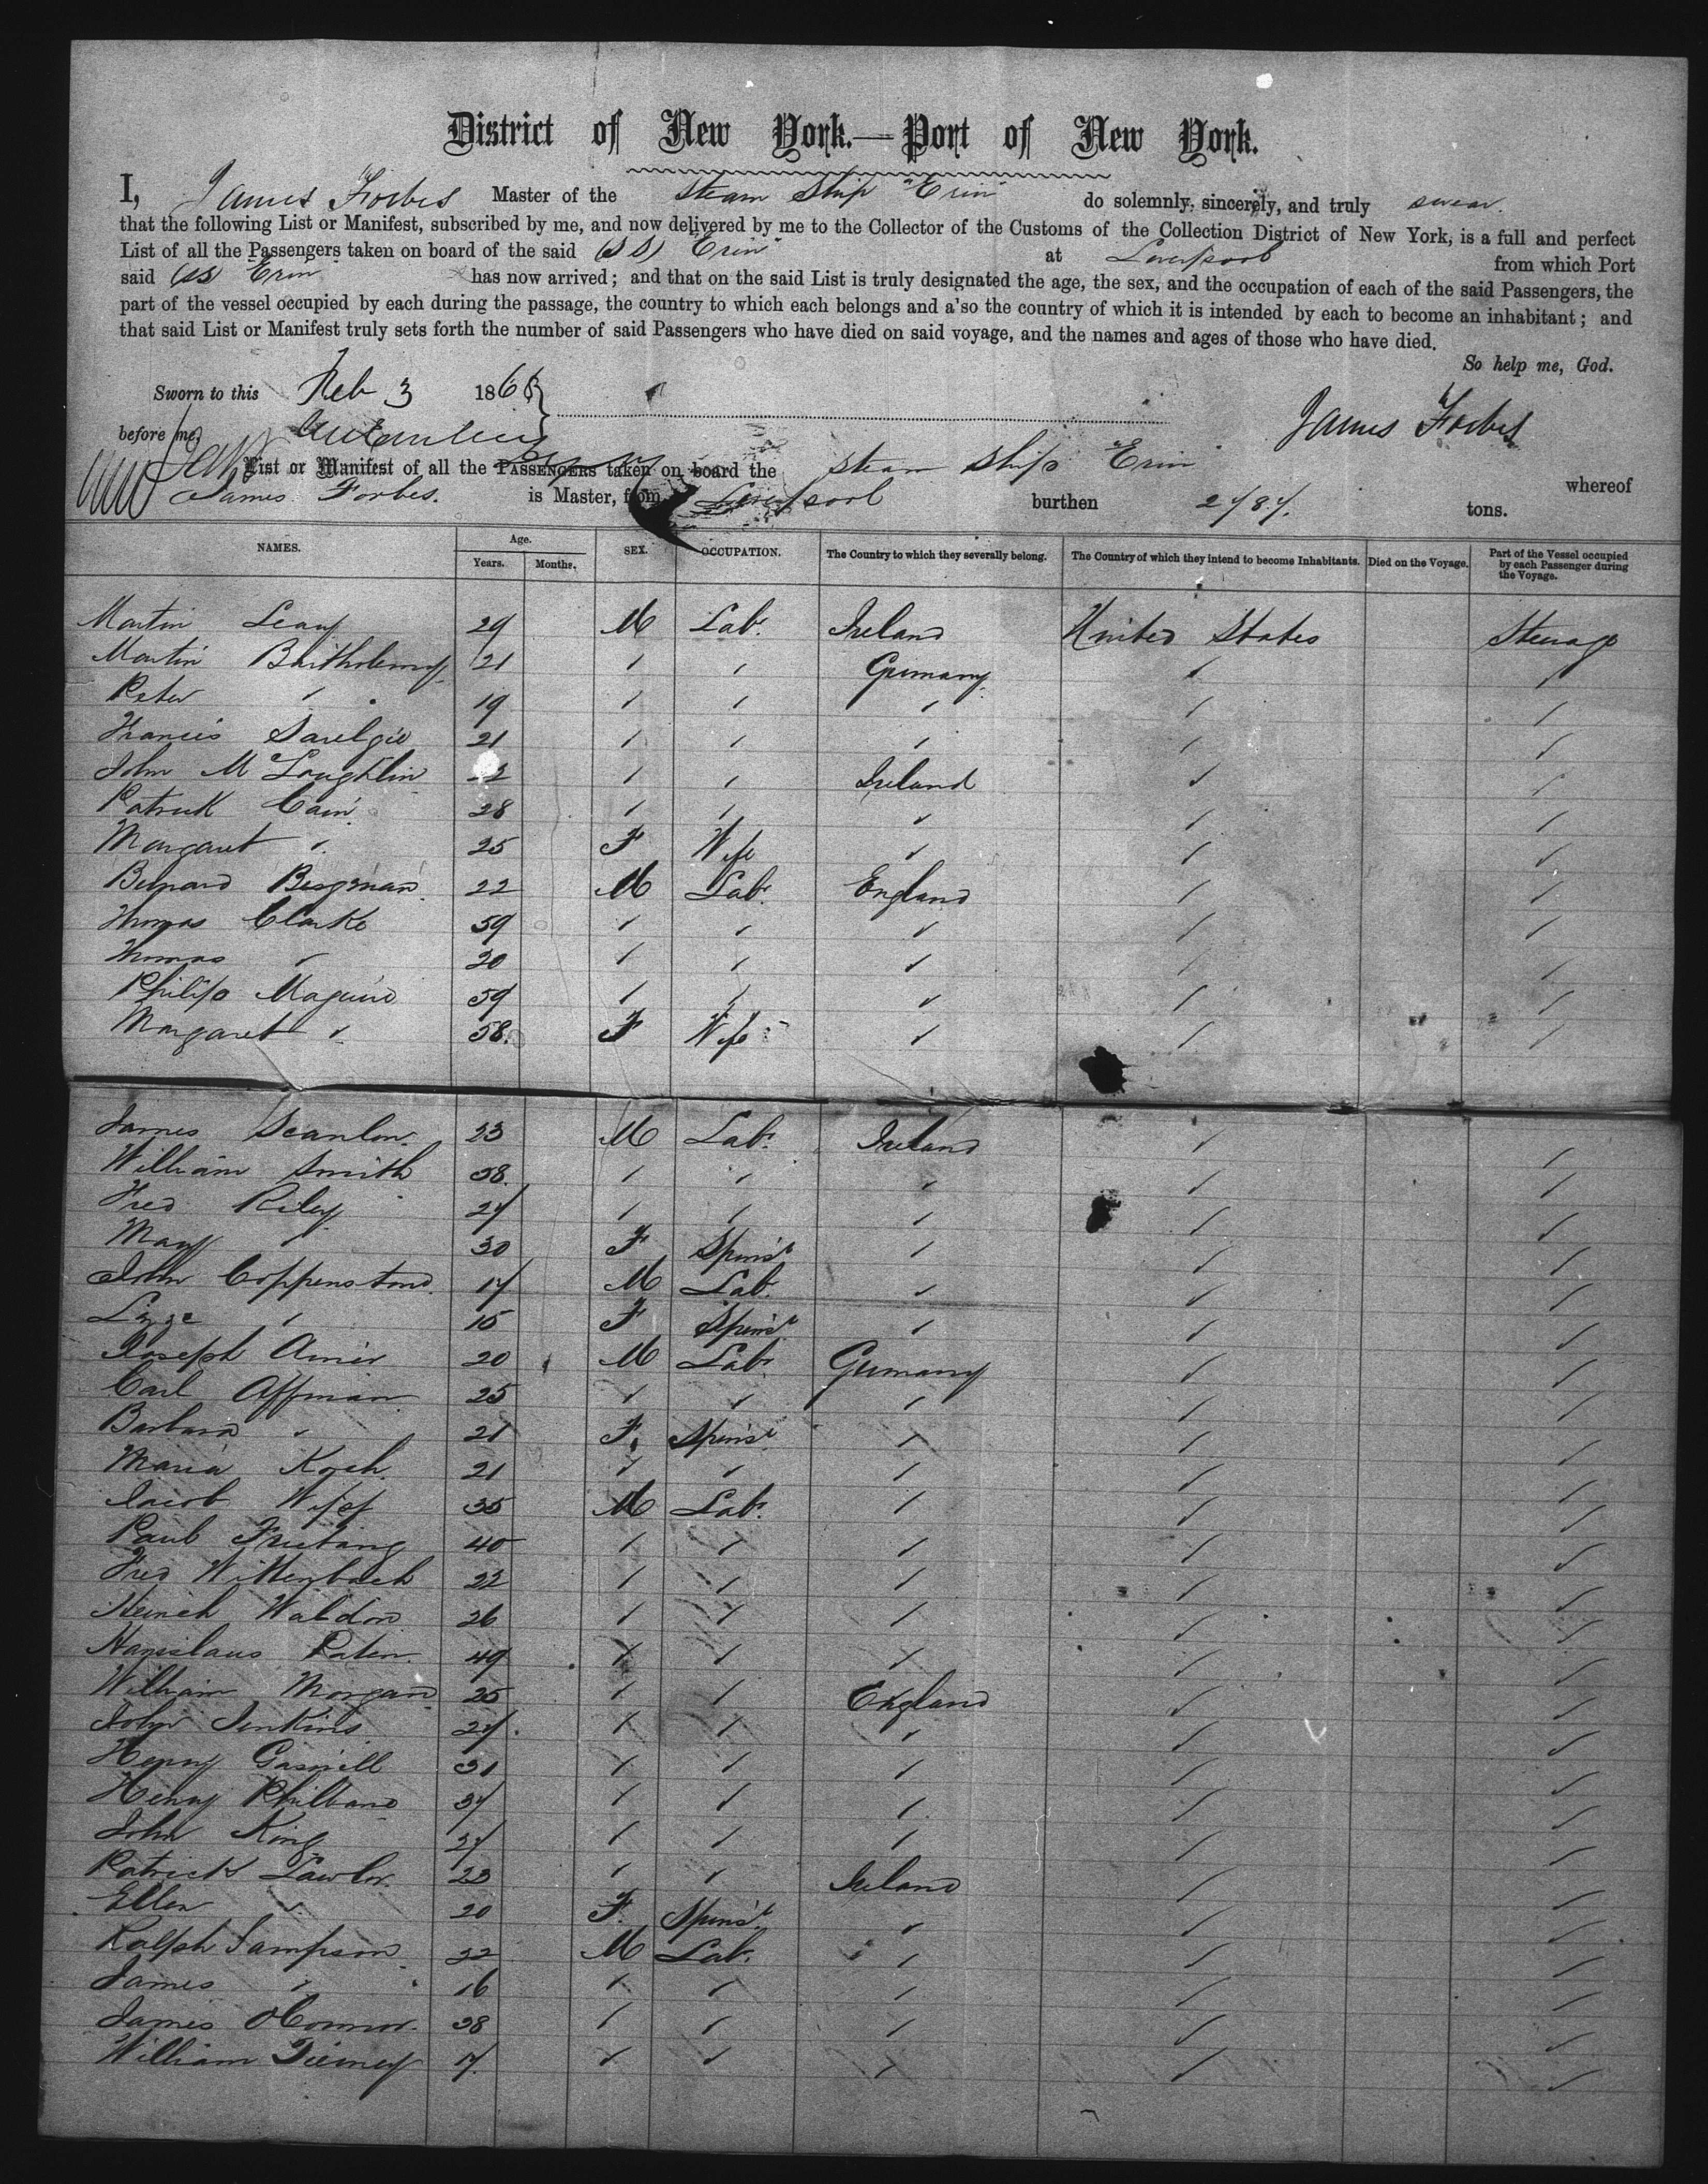 District of New York.—Port of New York.
I, James Forbes Master of the Steam Ship "Erin" do solemnly, sincerely, and truly swear.
that the following List or Manifest, subscribed by me, and now delivered by me to the Collector of the Customs of the Collection District of New York, is a full and perfect
List of all the Passengers taken on board of the said (SS) "Erin" at Liverpool from which Port
said (SS) Erin has now arrived; and that on the said List is truly designated the age, the sex, and the occupation of each of the said Passengers, the
part of the vessel occupied by each during the passage, the country to which each belongs and a'so the country of which it is intended by each to become an inhabitant; and
that said List or Manifest truly sets forth the number of said Passengers who have died on said voyage, and the names and ages of those who have died.
So help me, God.
Sworn to this Feb 3 186
James Forbes
before me,
List or Manifest of all the PASSENGERS taken on board the Steam Ship "Erin" whereof
James Forbes. is Master, from Liverpool burthen 2787. tons.
NAMES. Age. Years. Months. SEX. OCCUPATION. The Country to which they severally belong. The Country of which they intend to become Inhabitants. Died on the Voyage. Part of the Vessel occupied by each Passenger during the Voyage.
Martin Leary 29 M Labr. Ireland United States Steerage
Martin Bartholemy 21 " " Germany " "
Peter " 19 " " " " "
Francis 21 " " " " "
John McLoughlin " " Ireland " "
Patrick Cain 28 " " " " "
Margaret " 25 F Wife " " "
Bernard Bergman 22 M Labr. England " "
Thomas Clarke 59 " " " " "
Thomas " 20 " " " " "
Philip Maguire 59 " " " " "
Margaret " 58. F Wife " " "
James Scanlon 23 M Labr. Ireland " "
William Smith 38 " " " " "
Fred Riley 27 " " " " "
Mary " 30 F Spinst " " "
John Coppenstone 17 M Lab. " " "
Lizze " 15 F Spinst " " "
Joseph 20 M Labr Germany " "
Carl Affman 25 " " " " "
Barbara " 21 F. Spinst " " "
Maria Koch 21 " " " " "
Jacob 35 M Labr. " " "
Paul Freitang 40 " " " " "
Fred Wittenbach 22 " " " " "
Heinch Waldon 26 " " " " "
Stanislaus 49 " " " " "
William Morgan 25 " " England " "
John Jenkins 27. " " " " "
Henry Gaswell 31 " " " " "
Henry 37 " " " " "
John King 27 " " " " "
Patrick Lawlor. 23 " " Ireland " "
Ellen " 20 F. Spinst. " " "
Ralph Sampson 22 M Lab. " " "
James " 16 " " " " "
James OConnor. 38 " " " " "
William Tierney 17. " " " " "